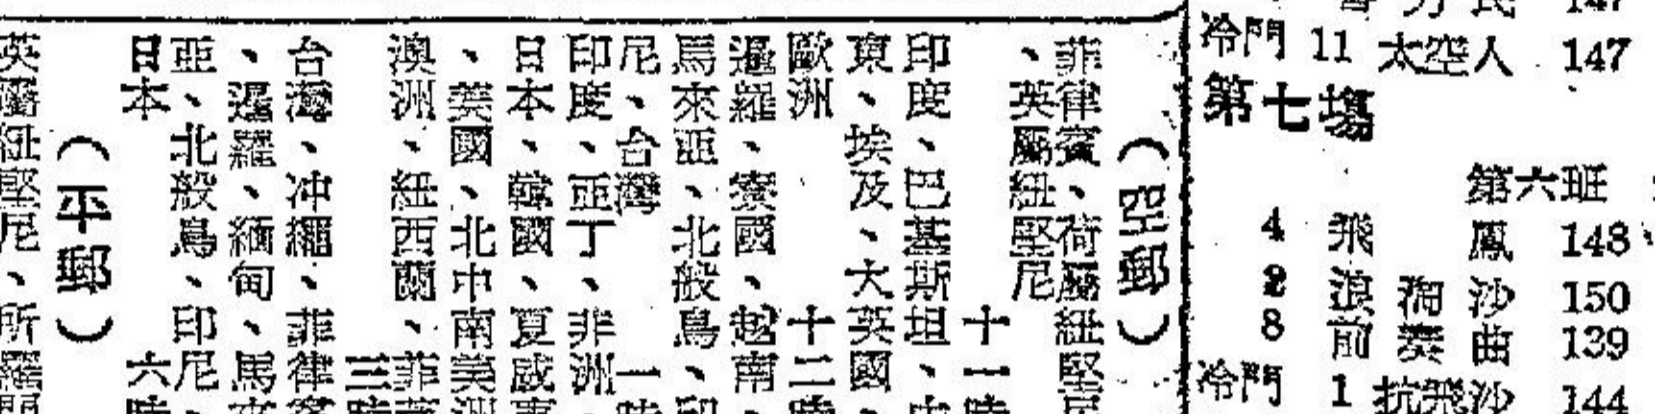 冷門 11 太空人 147
第七塲
第六班
4 飛鳳 148
2 浪淘沙 150
8 前奏曲 139
冷門 1 抗飛沙 144
（空郵）
菲律賓、荷屬紐堅尼
、英屬紐堅尼
十一時
印度、巴基斯坦、
東、埃及、大英國、
歐洲 十二時
暹羅、寮國、越南
馬來亞、北般鳥、印
尼、台灣 一時
印度、亞丁、非洲
日本、韓國、夏威夷
、美國、北中南美洲
澳洲、紐西蘭、菲
三時
台灣、冲繩、菲律賓
、暹羅、緬甸、馬來
亞、北般鳥、印尼、
日本 六時
（平郵）
英屬紐堅尼、所羅門